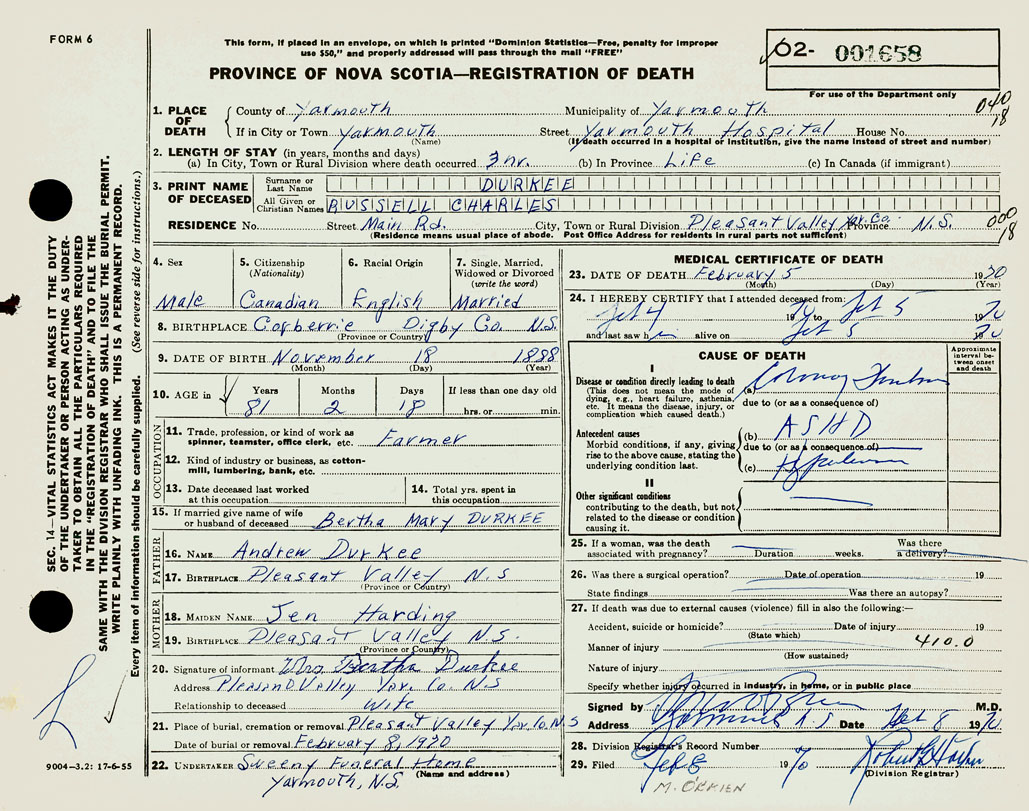 FORM 6
This form, if placed in an envelope, on which is printed "Dominion Statistics—Free, penalty for improper
use $50," and properly addressed will pass through the mail "FREE"
PROVINCE OF NOVA SCOTIA—REGISTRATION OF DEATH
62- 001658
For use of the Department only
1. PLACE OF DEATH
County of Yarmouth Municipality of Yarmouth 040
18
If in City or Town Yarmouth Street Yarmouth Hospital House No.
(Name) (If death occurred in a hospital or institution, give the name instead of street and number)
2. LENGTH OF STAY (in years, months and days)
(a) In City, Town or Rural Division where death occurred 3 hr. (b) In Province Life (c) In Canada (if immigrant)
3. PRINT NAME OF DECEASED
Surname or Last Name DURKEE
All Given or Christian Names RUSSELL CHARLES
RESIDENCE No. Street Main Rd. City, Town or Rural Division Pleasant Valley Yar. Co. Province N.S. 000
18
(Residence means usual place of abode. Post Office Address for residents in rural parts not sufficient)
4. Sex
Male
5. Citizenship
(Nationality)
Canadian
6. Racial Origin
English
7. Single, Married,
Widowed or Divorced
(write the word)
Married
8. BIRTHPLACE Corberrie Digby Co. N.S.
(Province or Country)
9. DATE OF BIRTH November 18 1888
(Month) (Day) (Year)
10. AGE in
Years Months Days If less than one day old
81 2 18 hrs. or min.
OCCUPATION
11. Trade, profession, or kind of work as
spinner, teamster, office clerk, etc. Farmer
12. Kind of industry or business, as cotton-
mill, lumbering, bank, etc.
13. Date deceased last worked
at this occupation
14. Total yrs. spent in
this occupation
15. If married give name of wife
or husband of deceased Bertha Mary DURKEE
FATHER
16. NAME Andrew Durkee
17. BIRTHPLACE Pleasant Valley N.S
(Province or Country)
MOTHER
18. MAIDEN NAME Jen Harding
19. BIRTHPLACE Pleasant Valley N.S.
(Province or Country)
20. Signature of informant Mrs Bertha Durkee
Address Pleasant Valley Yar. Co. N.S
Relationship to deceased Wife
21. Place of burial, cremation or removal Pleasant Valley Yar. Co. N.S
Date of burial or removal February 8, 1970
22. UNDERTAKER Sweeny Funeral Home
(Name and address)
Yarmouth, N.S.
MEDICAL CERTIFICATE OF DEATH
23. DATE OF DEATH February 5 1970
(Month) (Day) (Year)
24. I HEREBY CERTIFY that I attended deceased from:
Feb 4 1970 to Feb 5 1970
and last saw him alive on Feb 5 1970
CAUSE OF DEATH
Approximate
interval be-
tween onset
and death
I
Disease or condition directly leading to death
(This does not mean the mode of
dying, e.g., heart failure, asthenia,
etc. It means the disease, injury, or
complication which caused death.)
(a) Coronary
due to (or as a consequence of)
Antecedent causes
Morbid conditions, if any, giving
rise to the above cause, stating the
underlying condition last.
(b) ASHD
due to (or as a consequence of)
(c)
II
Other significant conditions
contributing to the death, but not
related to the disease or condition
causing it.
25. If a woman, was the death Was there
associated with pregnancy? Duration weeks. a delivery?
26. Was there a surgical operation? Date of operation 19
State findings Was there an autopsy?
27. If death was due to external causes (violence) fill in also the following:—
Accident, suicide or homicide? Date of injury 19
(State which)
Manner of injury 410.0
(How sustained)
Nature of injury
Specify whether injury occurred in industry, in home, or in public place
Signed by M.D.
Address Yarmouth N.S Date Feb 8 1970
28. Division Registrar's Record Number
29. Filed Feb 8 1970
(Division Registrar)
M. O'BRIEN
SEC. 14—VITAL STATISTICS ACT MAKES IT THE DUTY
OF THE UNDERTAKER OR PERSON ACTING AS UNDER-
TAKER TO OBTAIN ALL THE PARTICULARS REQUIRED
IN THE "REGISTRATION OF DEATH" AND TO FILE THE
SAME WITH THE DIVISION REGISTRAR WHO SHALL ISSUE THE BURIAL PERMIT.
WRITE PLAINLY WITH UNFADING INK. THIS IS A PERMANENT RECORD.
Every item of information should be carefully supplied. (See reverse side for instructions.)
9004—3.2: 17-6-55